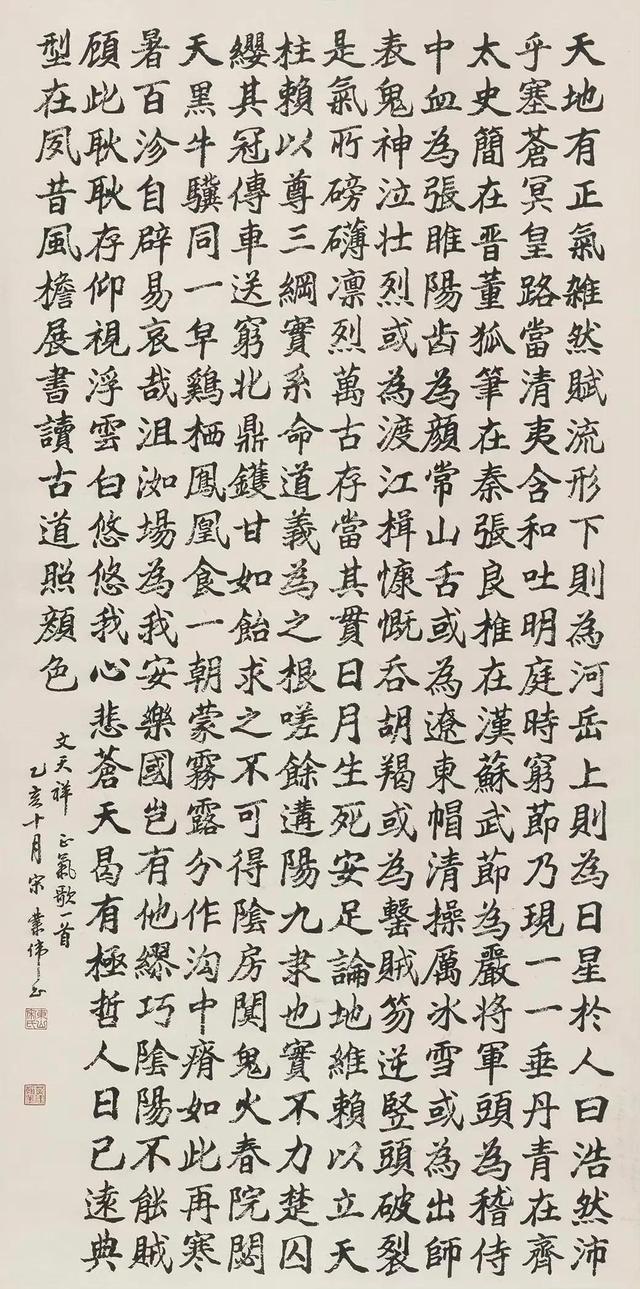 天地有正氣雜然賦流形下則為河岳上則為日星於人曰浩然沛
乎塞蒼冥皇路當清夷含和吐明庭時窮節乃現一一垂丹青在齊
太史簡在晋董狐筆在秦張良椎在漢蘇武節為嚴將軍頭為稽侍
中血為張睢陽齿為顏常山舌或為遼東帽清操厲冰雪或為出師
表鬼神泣壮烈或為渡江楫慷慨吞胡羯或為擊賊笏逆竪頭破裂
是氣所磅礴凛烈萬古存當其貫日月生死安足論地維賴以立天
柱賴以尊三綱實系命道義為之根嗟餘遘陽九隶也實不力楚囚
纓其冠傳車送窮北鼎鑊甘如飴求之不可得陰房闃鬼火春院閟
天黑牛驥同一皁鷄栖鳳凰食一朝蒙霧露分作沟中瘠如此再寒
暑百沴自辟易哀哉沮洳場為我安樂國岂有他繆巧陰陽不能賊
顾此耿耿存仰視浮雲白悠悠我心悲蒼天曷有極哲人日已遠典
型在夙昔風檐展書讀古道照顏色
文天祥 正氣歌一首
乙亥十月 宋業偉书